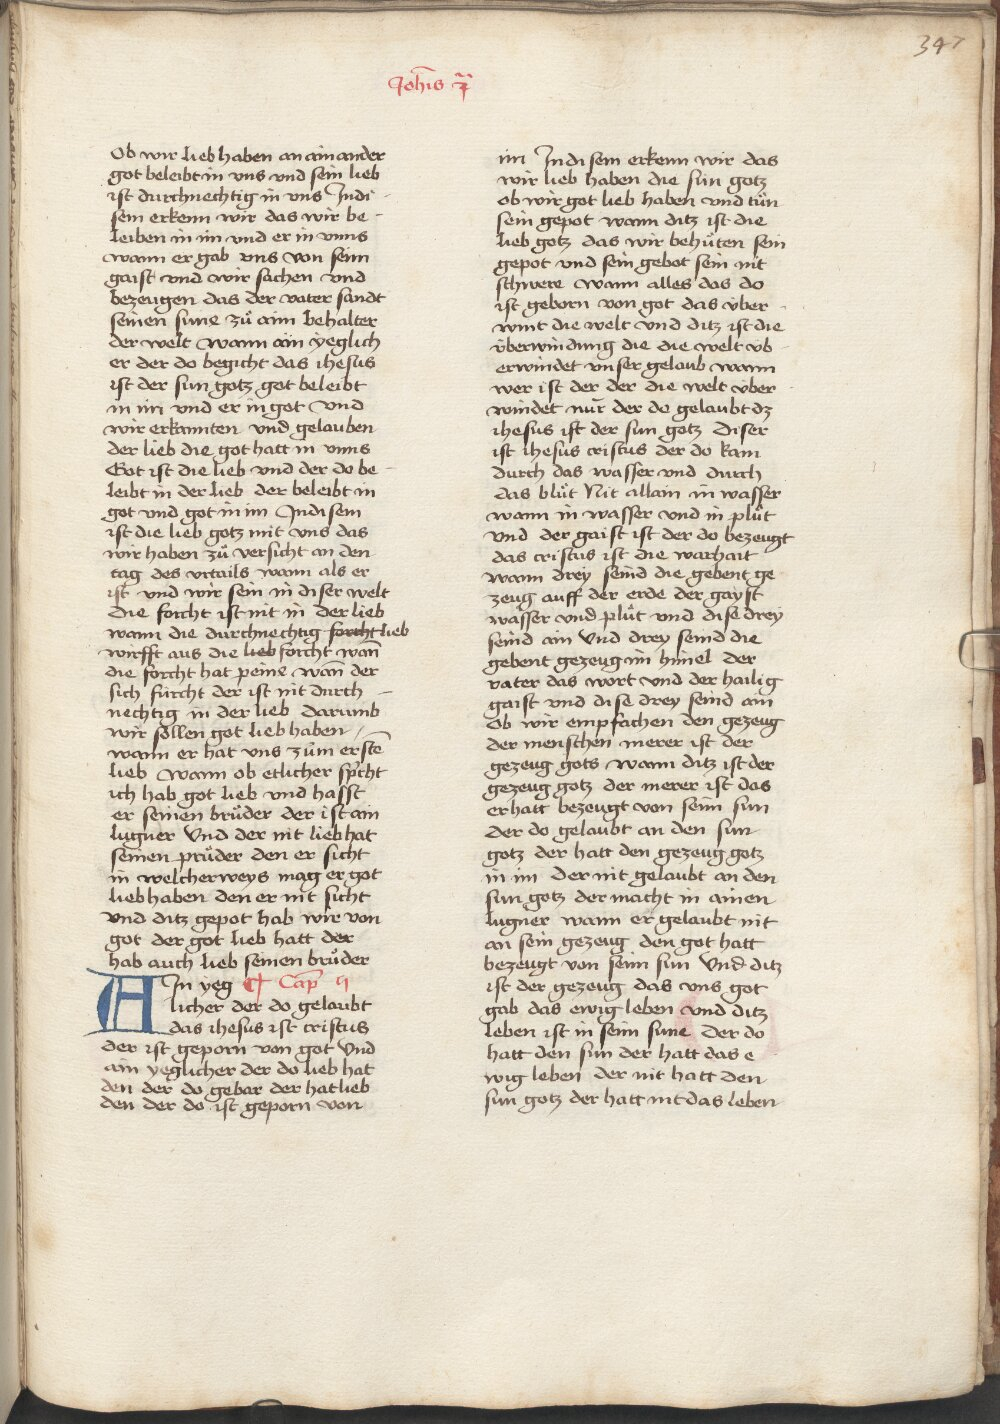 347
Joh̄is
Ob wir lieb haben an ainander
got beleibt in vns vnd sein lieb
ist durchnechtig in vns Indi-
sem erkenn wir das wir be-
leiben in im vnd er in vnns
wann er gab vns von seim
gaist vnd wir sachen vnd
bezeugen das der vater sandt
seinen sune zů aim behalter
der welt wann ain yeglich
er der do begicht das ihesus
ist der sun gotz got beleibt
in im vnd er in got vnd
wir erkannten vnd gelauben
der lieb die got hatt in vnns
Got ist die lieb vnd der do be-
leibt in der lieb der beleibt in
got vnd got in im Indisem
ist die lieb gotz mit vns das
wir haben zů versicht an den
tag des vrtails wann als er
ist vnd wir sein in diser welt
die forcht ist nit in der lieb
wann die durchnechtig forcht lieb
wirfft aus die lieb forcht wan̄
die forcht hat peine wan̄ der
sich fürcht der ist nit durch-
nechtig in der lieb darumb
wir söllen got lieb haben
wann er hat vns zům erstē
lieb wann ob etlicher sp̄cht
ich hab got lieb vnd hasst
er seinen brůder der ist ain
lugner Vnd der nit lieb hat
seinen průder den er sicht
in welcherweys mag er got
lieb haben den er nit sicht
vnd ditz gepot hab wir von
got der got lieb hatt der
hab auch lieb seinen brůder
AIn yeg ¶ Cap̄
licher der do gelaubt
das ihesus ist cristus
der ist geporn von got Vnd
ain yeglicher der do lieb hat
den der do gebar der hat lieb
den der do ist geporn von
im Indisem erkenn wir das
wir lieb haben die sün gotz
ob wir got lieb haben vnd tůn
sein gepot wann ditz ist die
lieb gotz das wir behůten sein
gepot vnd sein gebot sein nit
schwere wann alles das do
ist geborn von got das über-
wint die welt vnd ditz ist die
überwindung die die welt üb-
erwindet vnser gelaub wann
wer ist der der die welt über-
windet nur der do gelaubt dz
ihesus ist der sun gotz diser
ist ihesus cristus der do kam
durch das wasser vnd durch
das blůt Nit allain in wasser
wann in wasser vnd in plůt
vnd der gaist ist der do bezeugt
das cristus ist die warhait
wann drey seind die gebent ge
zeug auff der erde der gayst
wasser vnd plůt vnd dise drey
seind ain Vnd drey seind die
gebent gezeug im himel der
vater das wort vnd der hailig
gaist vnd dise drey seind ain
Ob wir empfachen den gezeug
der menschen merer ist der
gezeug gots wann ditz ist der
gezeug gotz der merer ist das
er hatt bezeugt von seim sun
der do gelaubt an den sun
gotz der hatt den gezeug gotz
in im der nit gelaubt an den
sun gotz der macht in ainen
lugner wann er gelaubt nit
an sein gezeug den got hatt
bezeugt von seim sun Vnd ditz
ist der gezeug das vns got
gab das ewig leben vnd ditz
leben ist in seim sune der do
hatt den sun der hatt das e
wig leben der nit hatt den
sun gotz der hatt nit das leben